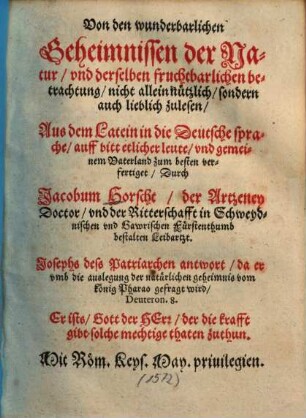 Von den wunderbarlichen
Geheimnissen der Na-
tur / vnd derselben fruchtbarlichen be-
trachtung / nicht allein nützlich / sondern
auch lieblich zulesen /
Aus dem Latein in die Deutsche spra-
che / auff bitt etlicher leute / vnd gemei-
nem Vaterland zum besten ver-
fertiget / Durch
Jacobum Horscht / der Artzeney
Doctor / vnd der Ritterschafft in Schweyd-
nischen vnd Gawrischen Fürstenthumb
bestalten Leibartzt.
Josephs dess Patriarchen antwort / da er
vmb die auslegung der natürlichen geheimnis vom
könig Pharao gefragt wird /
Deuteron. 8.
Er ists / Gott der HErr / der die krafft
gibt solche mechtige thaten zuthun.
Mit Röm. Keys. May. priuilegien.
(1572)